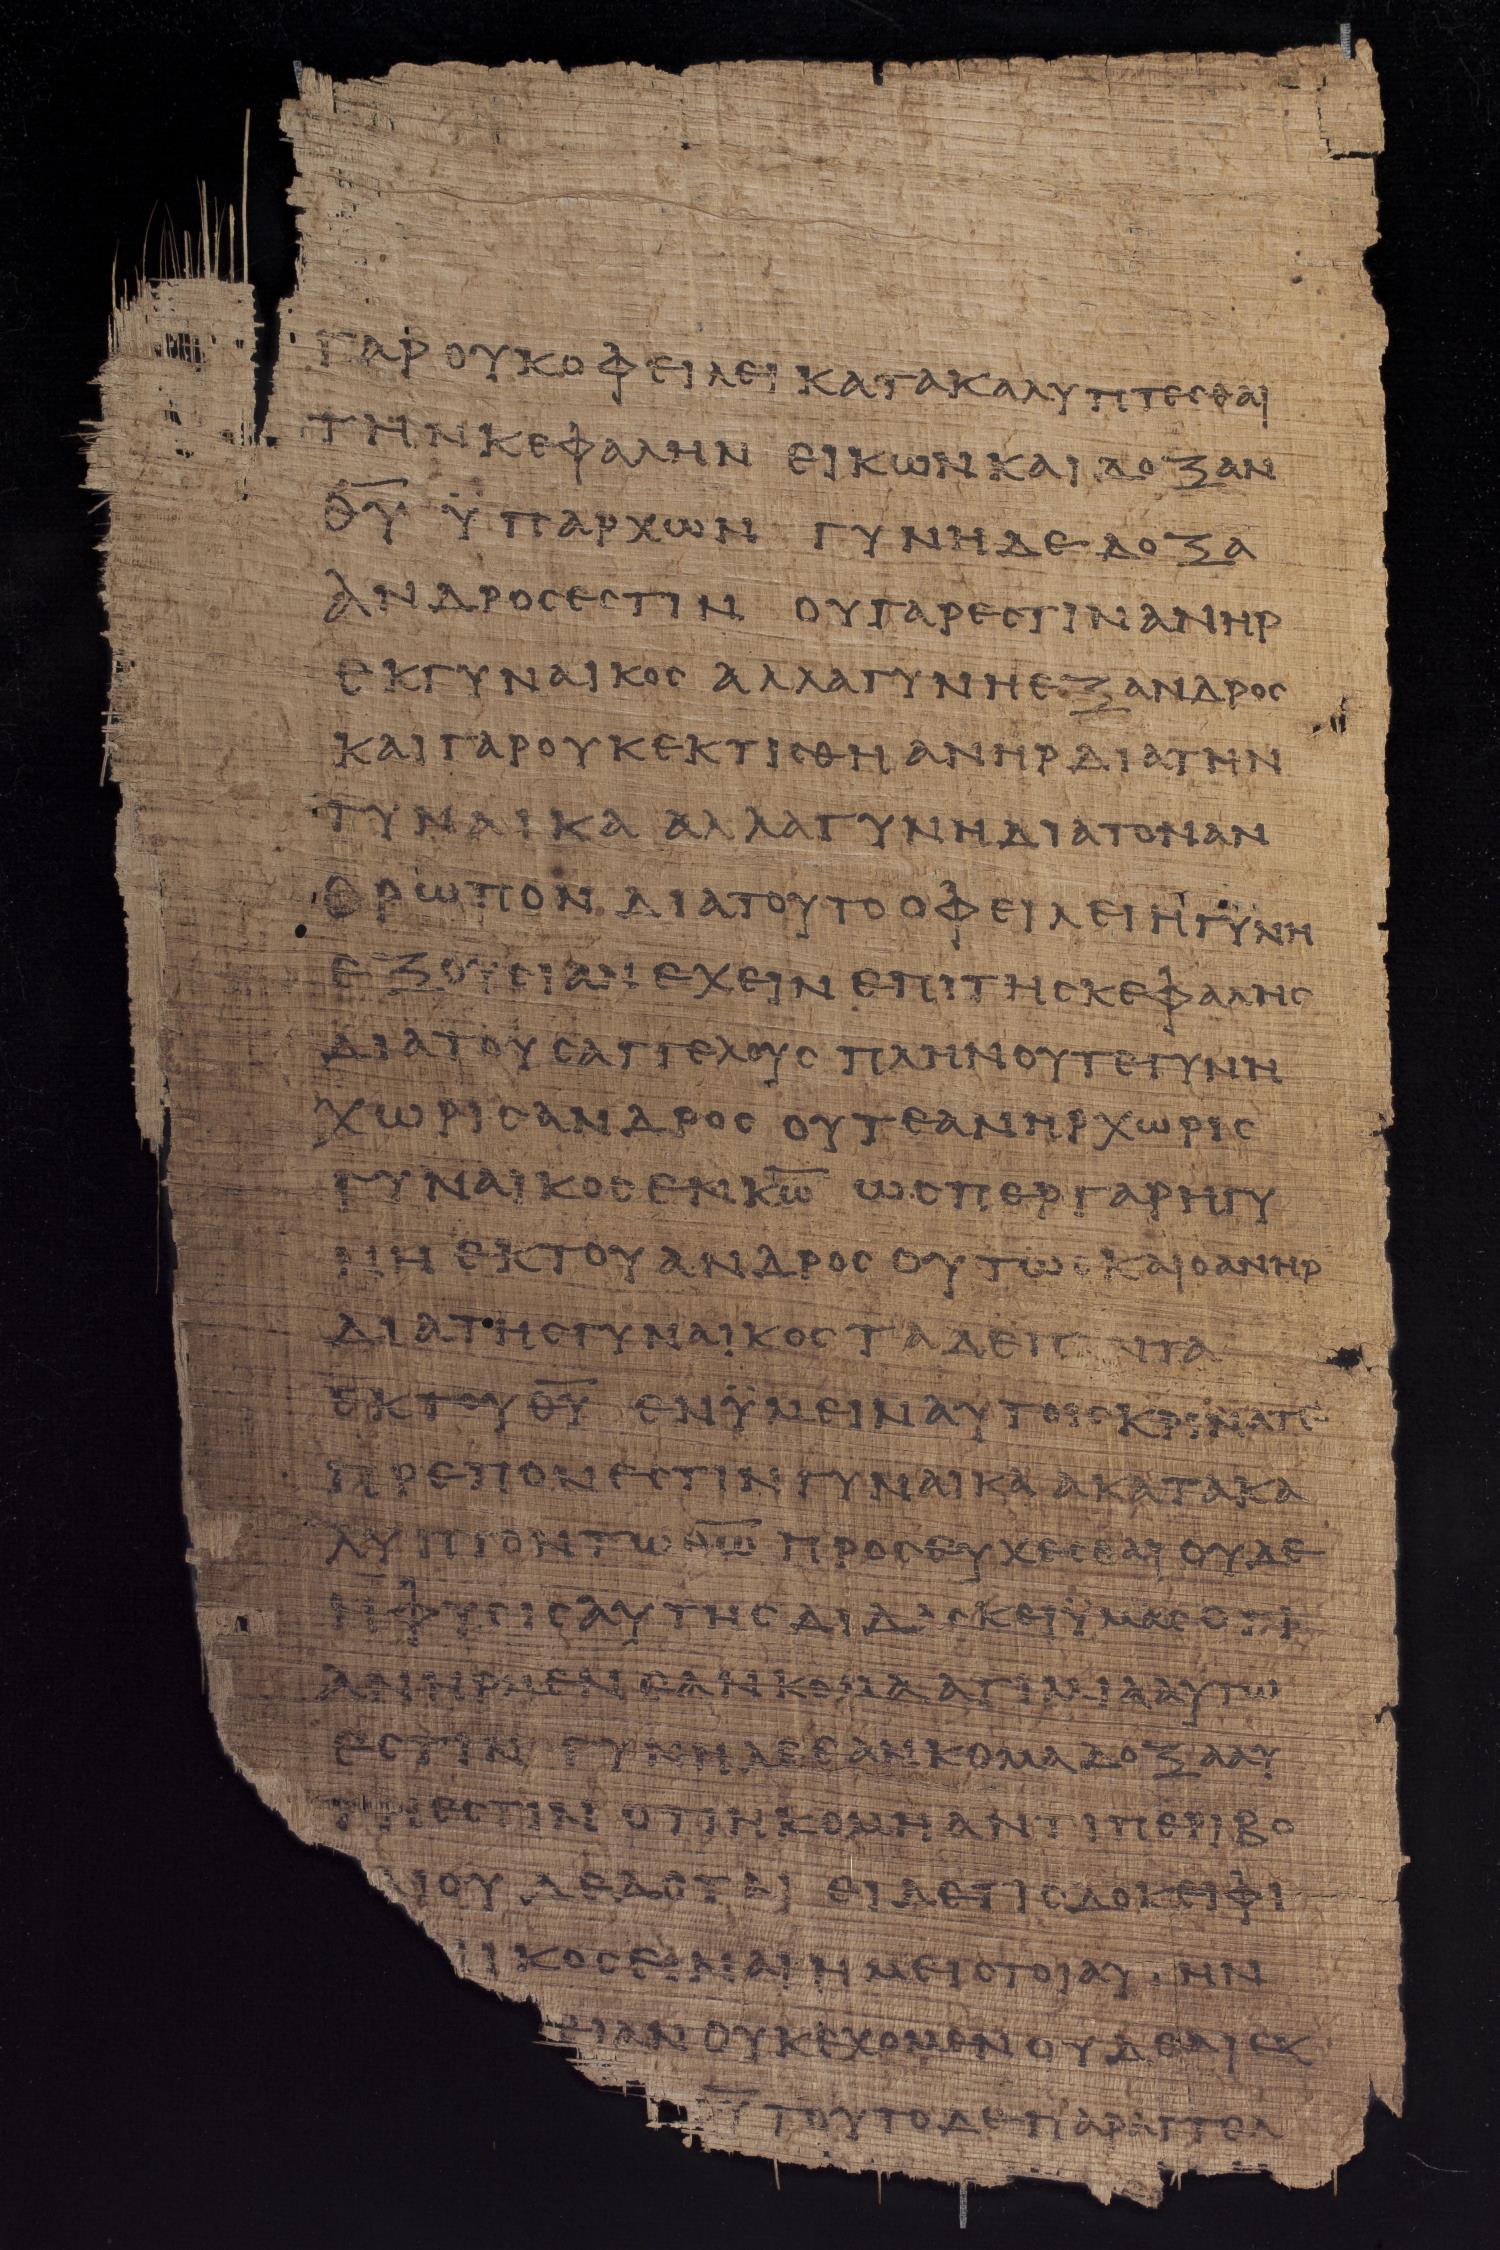 ΓΑΡ ΟΥΚ ΟΦΕΙΛΕΙ ΚΑΤΑΚΑΛΥΠΤΕϹΘΑΙ
ΤΗΝ ΚΕΦΑΛΗΝ ΕΙΚΩΝ ΚΑΙ ΔΟΞΑ Ν
Θ̅Υ̅ ΫΠΑΡΧΩΝ ΓΥΝΗ ΔΕ ΔΟΞΑ
ΑΝΔΡΟϹ ΕϹΤΙΝ ΟΥ ΓΑΡ ΕϹΤΙΝ ΑΝΗΡ
ΕΚ ΓΥΝΑΙΚΟϹ ΑΛΛΑ ΓΥΝΗ ΕΞ ΑΝΔΡΟϹ
ΚΑΙ ΓΑΡ ΟΥΚ ΕΚΤΙϹΘΗ ΑΝΗΡ ΔΙΑ ΤΗΝ
ΓΥΝΑΙΚΑ ΑΛΛΑ ΓΥΝΗ ΔΙΑ ΤΟΝ ΑΝ
ΘΡΩΠΟΝ ΔΙΑ ΤΟΥΤΟ ΟΦΕΙΛΕΙ Η ΓΥΝΗ
ΕΞΟΥϹΙΑΝ ΕΧΕΙΝ ΕΠΙ ΤΗϹ ΚΕΦΑΛΗϹ
ΔΙΑ ΤΟΥϹ ΑΓΓΕΛΟΥϹ ΠΛΗΝ ΟΥΤΕ ΓΥΝΗ
ΧΩΡΙϹ ΑΝΔΡΟϹ ΟΥΤΕ ΑΝΗΡ ΧΩΡΙϹ
ΓΥΝΑΙΚΟϹ ΕΝ Κ̅Ω̅ ΩϹΠΕΡ ΓΑΡ Η ΓΥ
ΝΗ ΕΚ ΤΟΥ ΑΝΔΡΟϹ ΟΥΤΩϹ ΚΑΙ Ο ΑΝΗΡ
ΔΙΑ ΤΗϹ ΓΥΝΑΙΚΟϹ ΤΑ ΔΕ
ΕΚ ΤΟΥ Θ̅Υ̅ ΕΝ ΫΜΕΙΝ ΑΥΤΟΙϹ ΚΡΙΝΑΤΕ
ΠΡΕΠΟΝ ΕϹΤΙΝ ΓΥΝΑΙΚΑ ΑΚΑΤΑΚΑ
ΛΥΠΤΟΝ ΤΩ Θ̅Ω̅ ΠΡΟϹΕΥΧΕϹΘΑΙ ΟΥΔΕ
Η ΦΥϹΙϹ ΑΥΤΗ Ϲ ΔΙΔΑϹΚΕΙ ΫΜΑϹ ΟΤΙ
ΑΝΗΡ ΜΕΝ ΕΑΝ ΚΟΜΑ ΑΤΙΜΙΑ ΑΥΤΩ
ΕϹΤΙΝ ΓΥΝΗ ΔΕ ΕΑΝ ΚΟΜΑ ΔΟΞΑ ΑΥ
ΤΗ ΕϹΤΙΝ ΟΤΙ Η ΚΟΜΗ ΑΝΤΙ ΠΕΡΙΒΟ
ΛΙΟΥ ΔΕΔΟΤΑΙ ΕΙ ΔΕ ΤΙϹ ΔΟΚΕΙ ΦΙ
ΙΚΟϹ ΕΙΝΑΙ ΗΜΕΙϹ ΤΟΙΑΥΤΗΝ
ΕΙΑΝ ΟΥΚ ΕΧΟΜΕΝ ΟΥΔΕ ΑΙ ΕΚ
ΤΟΥΤΟ ΔΕ ΠΑΡΑΓΓΕΛ